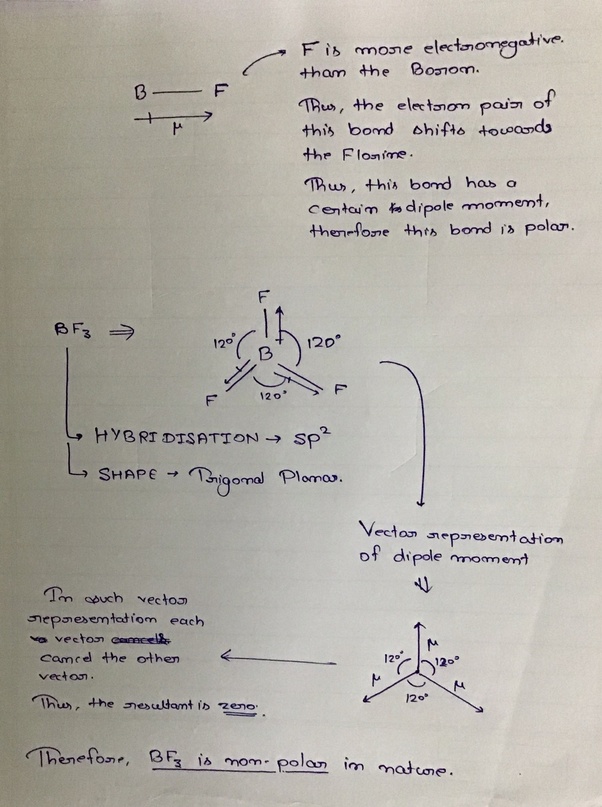 F is more electronegative.
than the Boron.
B — F
μ
Thus, the electron pair of
this bond shifts towards
the Florine.
Thus, this bond has a
certain dipole moment,
therefore this bond is polar.
BF3 ⇒
F
120° 120°
B
F 120° F
HYBRIDISATION → sp2
SHAPE → Trigonal Planar.
Vector representation
of dipole moment
In such vector
representation each
vector cancels
cancel the other
vector.
Thus, the resultant is zero.
μ
120° 120°
μ μ
120°
Therefore, BF3 is non-polar in nature.